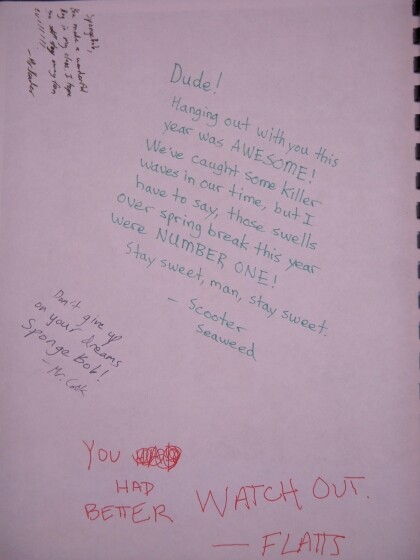 Spongebob,
You make a wonderful
in my class. I hope
you on my
Dude!
Hanging out with you this
year was AWESOME!
We've caught some killer
waves in our time, but I
have to say, those swells
over spring break this year
were NUMBER ONE!
Stay sweet, man, stay sweet.
- Scooter
Seaweed
Don't give up
on your dreams
SpongeBob!
- Mr.
YOU
HAD
BETTER WATCH OUT.
- FLATTS